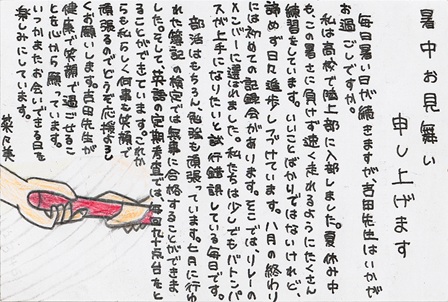 暑中お見舞い
申し上げます
毎日暑い日が続きますが吉田先生はいかが
お過ごしですか。
私は高校で陸上部に入部しました。夏休み中
も、この暑さに負けず速く走れるようにたくさん
練習をしています。いいことばかりではないけれど、
諦めず日々進歩しつづけています。八月の終わり
には初めての記録会があります。そこではリレーの
メンバーに選ばれました。私たちは少しでもバトンパ
スが上手になりたいと試行錯誤している毎日です。
部活はもちろん、勉強も頑張っています。七月に行わ
れた簿記の検定では無事に合格することができま
した。そして、英語の定期考査では、毎回九十点台をと
ることができています。これか
らも私らしく何事も笑顔で
頑張るのでどうぞ応援よろし
くお願いします。吉田先生が
健康で笑顔で過ごせるこ
とを心から願っています。
いつかまたお会いできる日を
楽しみにしています。
菜々美